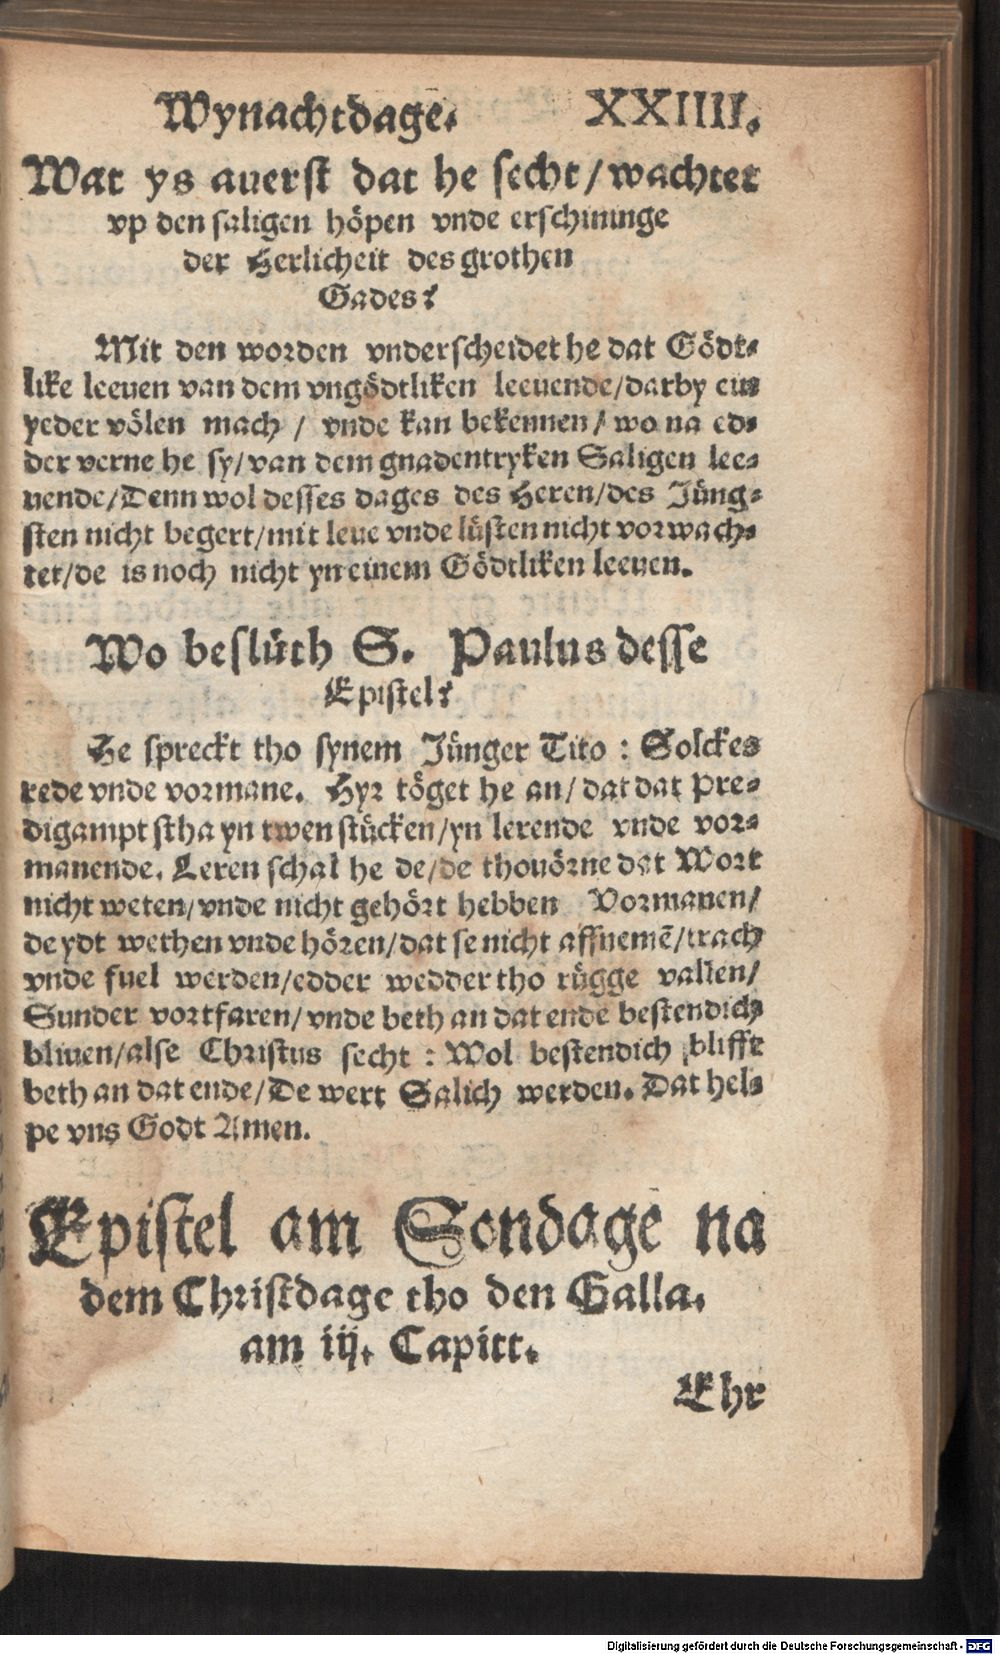 Wynachtdage. XXIIII.
Wat ys auerst dat he secht/wachtet
vp den saligen höpen vnde erschininge
der Herlicheit des grothen
Gades?
Mit den worden vnderscheidet he dat Gödt⸗
like leeuen van dem vngödtliken leeuende/darby ein
yeder völen mach / vnde kan bekennen/ wo na ed⸗
der verne he sy/van dem gnadentryken Saligen lee⸗
uende/Denn wol desses dages des Heren/des Jüng⸗
sten nicht begert/mit leue vnde lüsten nicht vorwach⸗
tet/de is noch nicht yn einem Gödtliken leeuen.
Wo beslüth S. Paulus desse
Epistel?
He spreckt tho synem Jünger Tito : Solckes
rede vnde vormane. Hyr töget he an/ dat dat Pre⸗
digampt stha yn twen stücken/yn lerende vnde vor⸗
manende. Leren schal he de/de thouörne dat Wort
nicht weten/vnde nicht gehört hebben Vormanen/
de ydt wethen vnde hören/dat se nicht affnemē/trach
vnde fuel werden/edder wedder tho rügge vallen/
Sunder vortfaren/vnde beth an dat ende bestendich
bliuen/alse Christus secht : Wol bestendich blifft
beth an dat ende/De wert Salich werden. Dat hel⸗
pe vns Godt Amen.
Epistel am Sondage na
dem Christdage tho den Galla.
am iij. Capitt.
Ehr
Digitalisierung gefördert durch die Deutsche Forschungsgemeinschaft - DFG